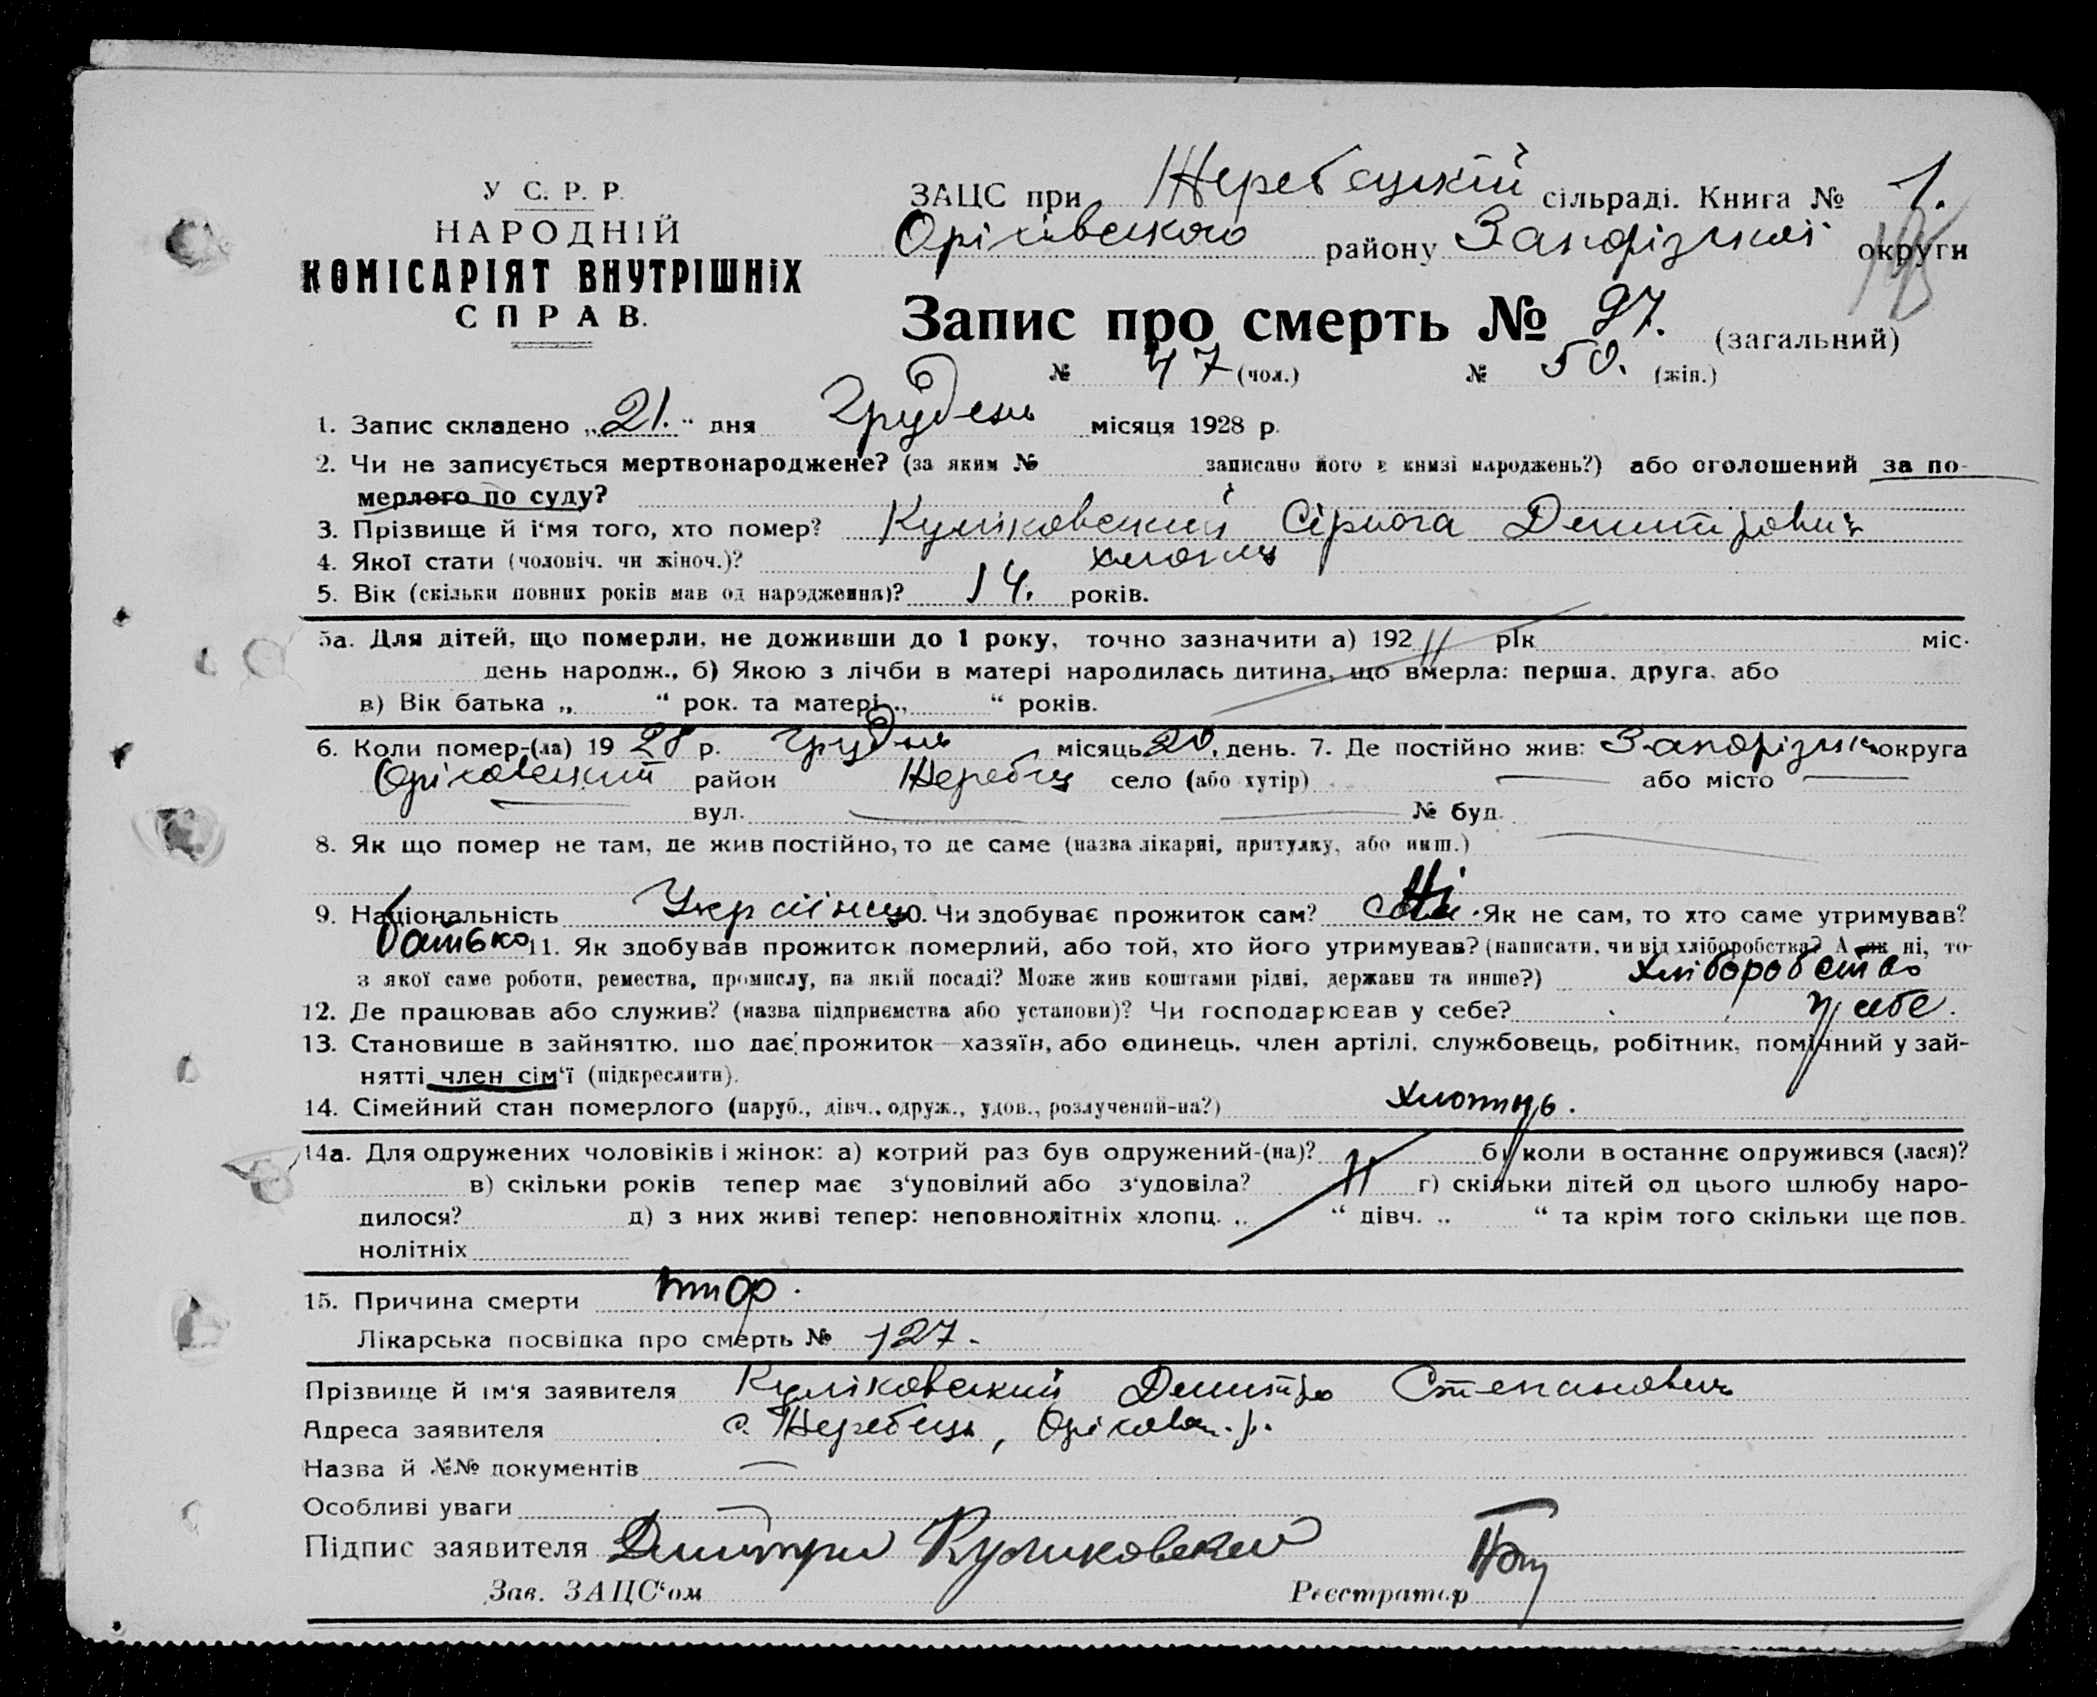 У С. Р. Р.
НАРОДНІЙ
КОМІСАРІЯТ ВНУТРІШНІХ
СПРАВ.
ЗАЦС при Жеребецкій сільраді. Книга № 1.
Оріхівського району Запорізької округи
Запис про смерть № 97. (загальний)
№ 47 (чол.) № 50. (жін.)
1. Запис складено „21.“ дня Грудень місяця 1928 р.
2. Чи не записується мертвонароджене? (за яким № записано його в книзі народжень?) або оголошений за по-
мерлого по суду?
3. Прізвище й ім‘я того, хто помер? Куліковський Сірьога Дмитрович
4. Якої стати (чоловіч. чи жіноч.)? хлопець
5. Вік (скільки повних років мав од народження)? 14. років.
5а. Для дітей, що померли, не доживши до 1 року, точно зазначити а) 192 // рік міс.
день народж., б) Якою з лічби в матері народилась дитина, що вмерла: перша, друга, або
в) Вік батька „ “ рок. та матері „ “ років.
6. Коли помер-(ла) 1928 р. Грудень місяць 20. день. 7. Де постійно жив: Запорізька округа
Оріховецкий район Жеребець село (або хутір) — або місто —
— вул. — — № буд.
8. Як що помер не там, де жив постійно, то де саме (назва лікарні, притулку, або инш.) —
9. Національність Українець 10. Чи здобуває прожиток сам? Ні. Як не сам, то хто саме утримував?
батько 11. Як здобував прожиток померлий, або той, хто його утримував? (написати, чи від хліборобства? А як ні, то
з якої саме роботи, ремества, промислу, на якій посаді? Може жив коштами рідні, держави та инше?) хліборобство
12. Де працював або служив? (назва підприємства або установи)? Чи господарював у себе? у себе.
13. Становище в зайняттю, що дає прожиток—хазяїн, або одинець, член артілі, службовець, робітник, помічний у зай-
нятті член сім‘ї (підкреслити).
14. Сімейний стан померлого (паруб., дівч., одруж., удов., розлучений-на?) хлопець.
14а. Для одружених чоловіків і жінок: а) котрий раз був одружений-(на)? б) коли востаннє одружився (лася)?
в) скільки років тепер має з‘удовілий або з‘удовіла? // г) скільки дітей од цього шлюбу наро-
дилося? д) з них живі тепер: неповнолітніх хлопц. „ “ дівч. „ “ та крім того скільки ще пов.
нолітніх
15. Причина смерти тиф.
Лікарська посвідка про смерть № 127.
Прізвище й ім‘я заявителя Куліковський Дмитро Степанович
Адреса заявителя с. Жеребець, Оріхов. р.
Назва й №№ документів —
Особливі уваги
Підпис заявителя Дмитри Куликовский
Зав. ЗАЦС‘ом Реєстратор